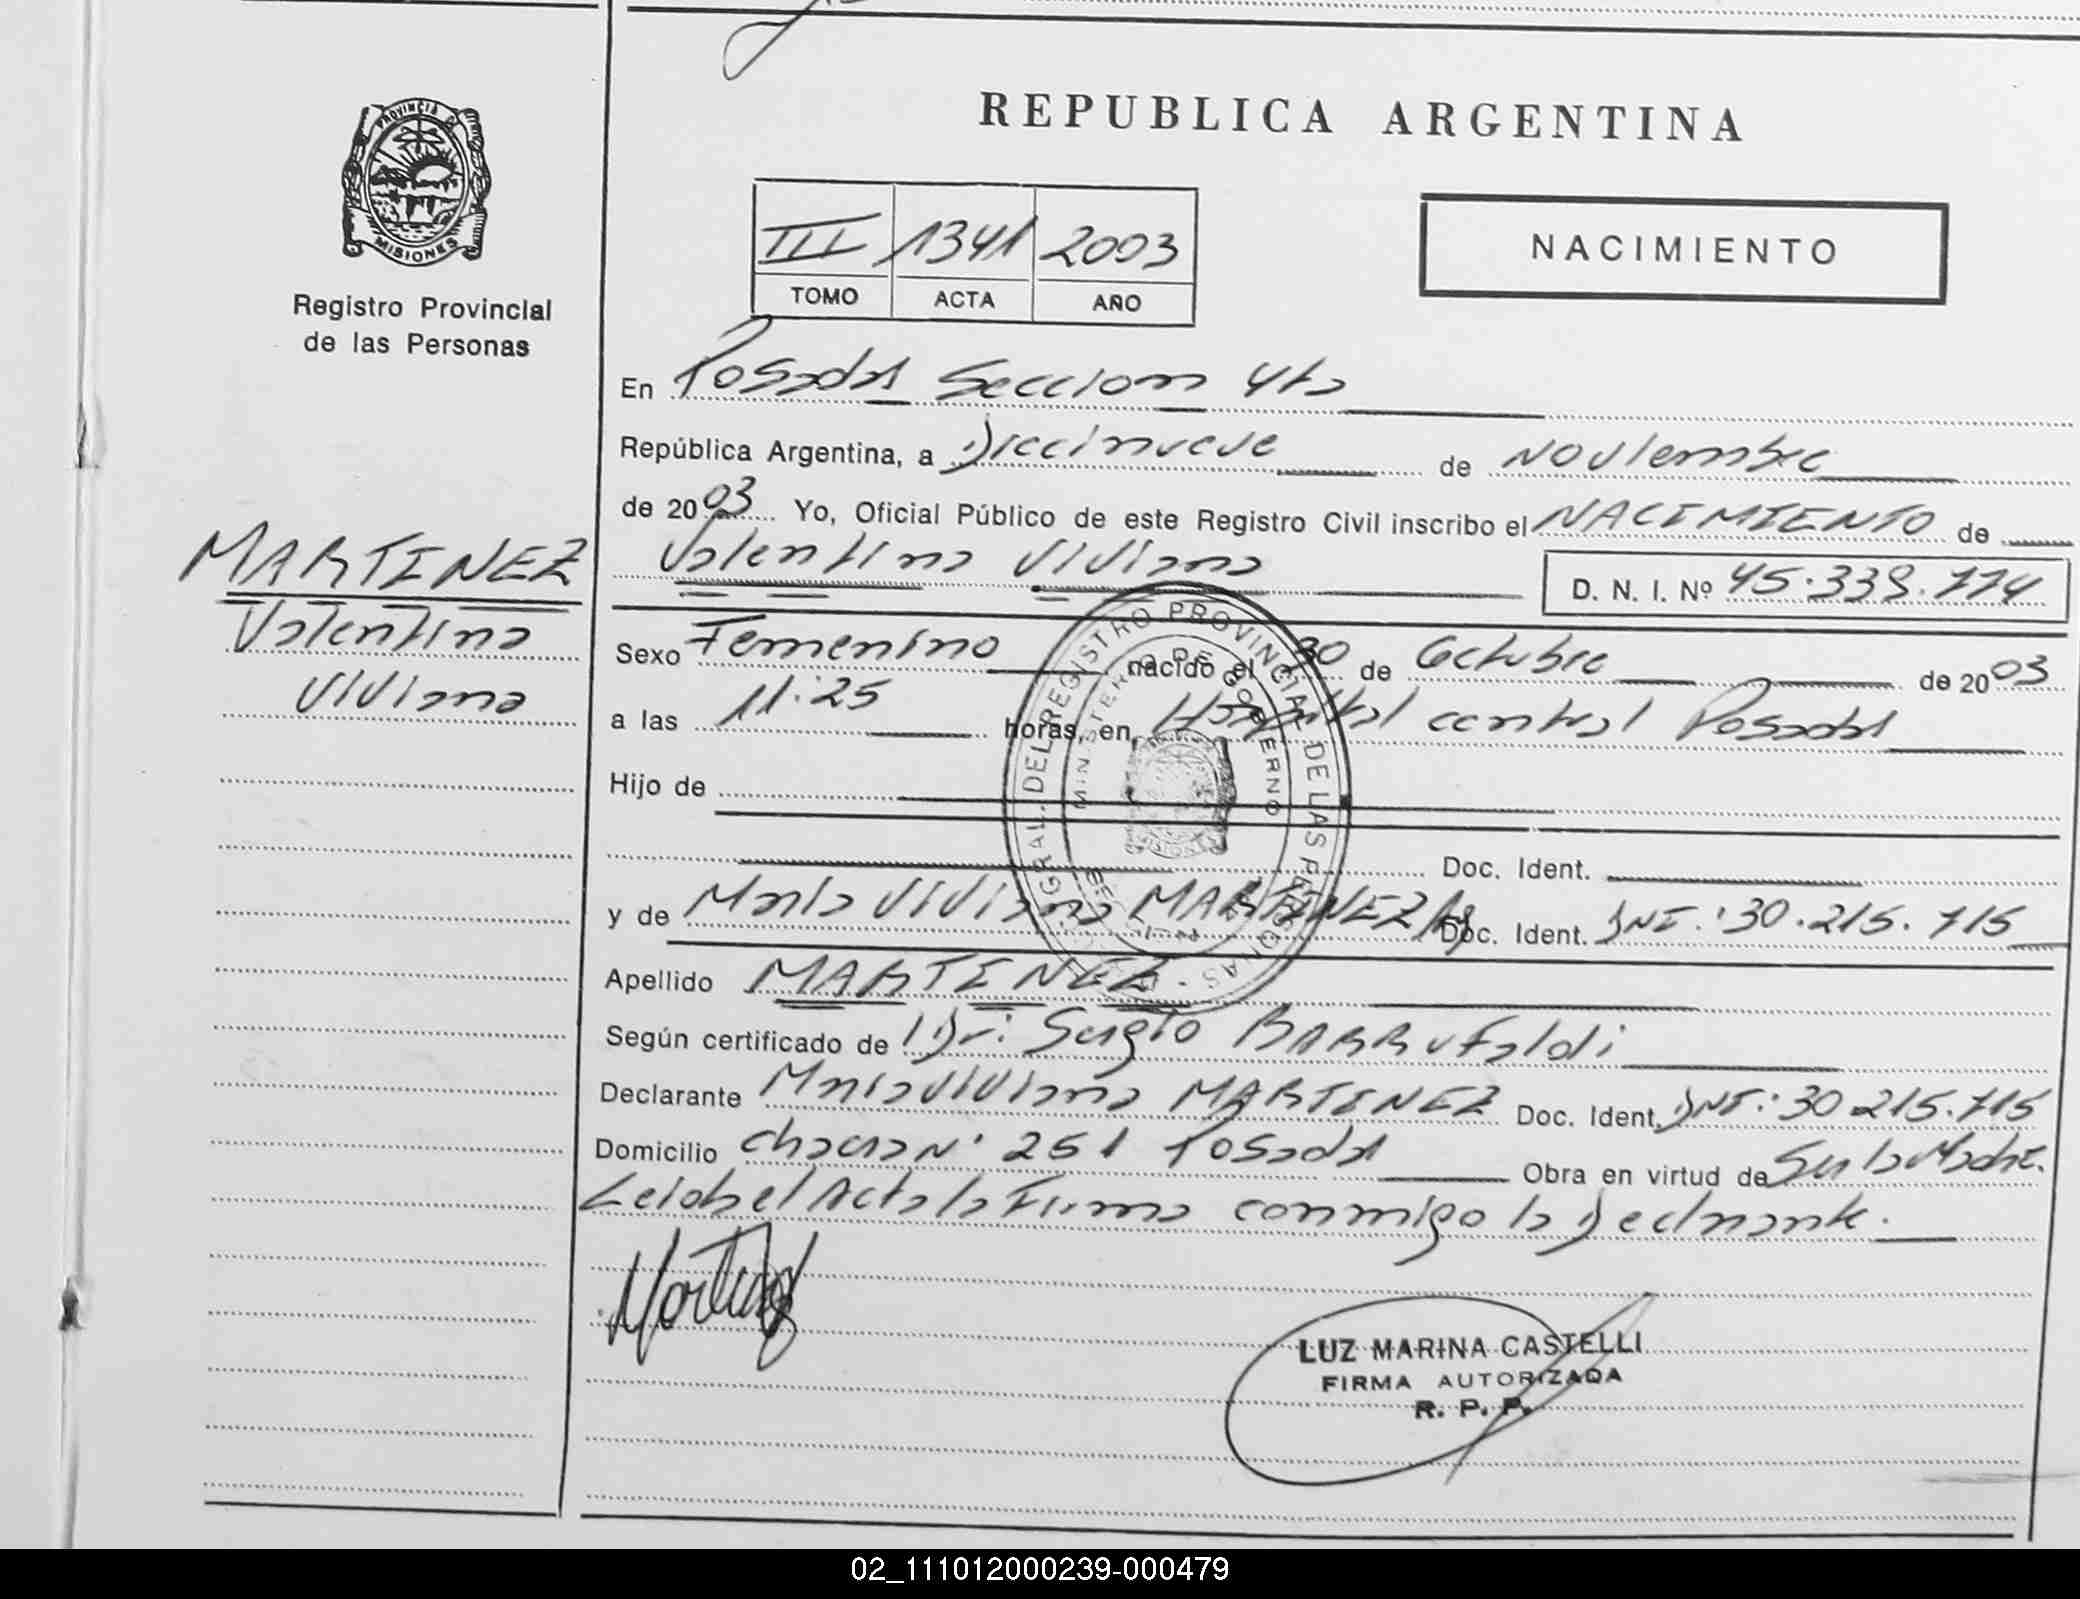 REPUBLICA ARGENTINA
PROVINCIA DE MISIONES
Registro Provincial
de las Personas
III 1341 2003
TOMO ACTA AÑO
NACIMIENTO
En Posadas Seccion 4ta
República Argentina, a Diecinueve de Noviembre
de 2003 Yo, Oficial Público de este Registro Civil inscribo el NACIMIENTO de
Valentina Viviana D. N. I. Nº 45.339.774
MARTINEZ
Valentina
Viviana
Sexo Femenino nacido el 30 de Octubre de 2003
a las 11:25 horas, en Hospital central Posadas
Hijo de
Doc. Ident.
y de Maria Viviana MARTINEZ Doc. Ident. DNI: 30.215.715
Apellido MARTINEZ.
Según certificado de Dr: Sergio BARRUFaldi
Declarante Maria Viviana MARTINEZ Doc. Ident. DNI: 30.215.715
Domicilio Chacra N° 251 Posadas Obra en virtud de Ser la Madre.
Leida el Acta la Firma conmigo la Declarante.
LUZ MARINA CASTELLI
FIRMA AUTORIZADA
R. P. P.
DEL REGISTRO PROVINCIAL DE LAS PERSONAS
MINISTERIO DE GOBIERNO
02_111012000239-000479